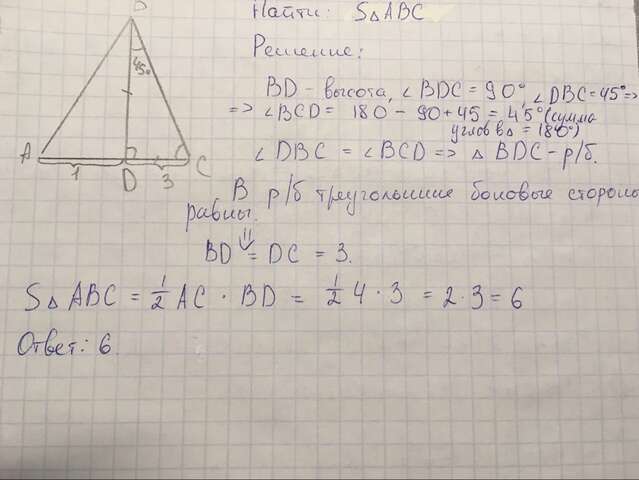 Найти: S△ABC
Решение:
45°
BD - высота, ∠BDC = 90°, ∠DBC = 45° =>
=> ∠BCD = 180 - 90 + 45 = 45° (сумма
углов в △ = 180°)
∠DBC = ∠BCD => △BDC - р/б.
A 1 D 3 C
В р/б треугольнике боковые стороны
равны.
BD = DC = 3.
S△ABC = 1/2 AC · BD = 1/2 4 · 3 = 2 · 3 = 6
Ответ: 6.